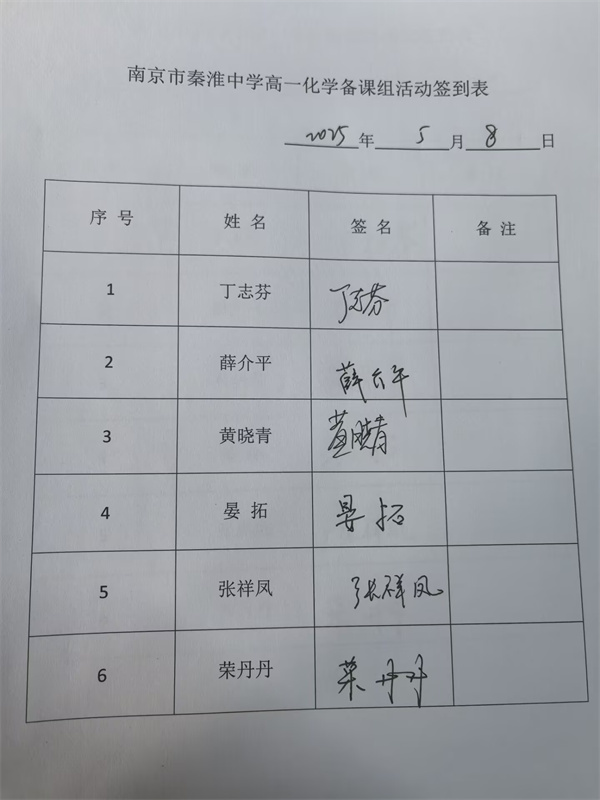 南京市秦淮中学高一化学备课组活动签到表
2025 年 5 月 8 日
序号 姓名 签名 备注
1 丁志芬 丁志芬
2 薛介平 薛介平
3 黄晓青 黄晓青
4 晏拓 晏拓
5 张祥凤 张祥凤
6 荣丹丹 荣丹丹